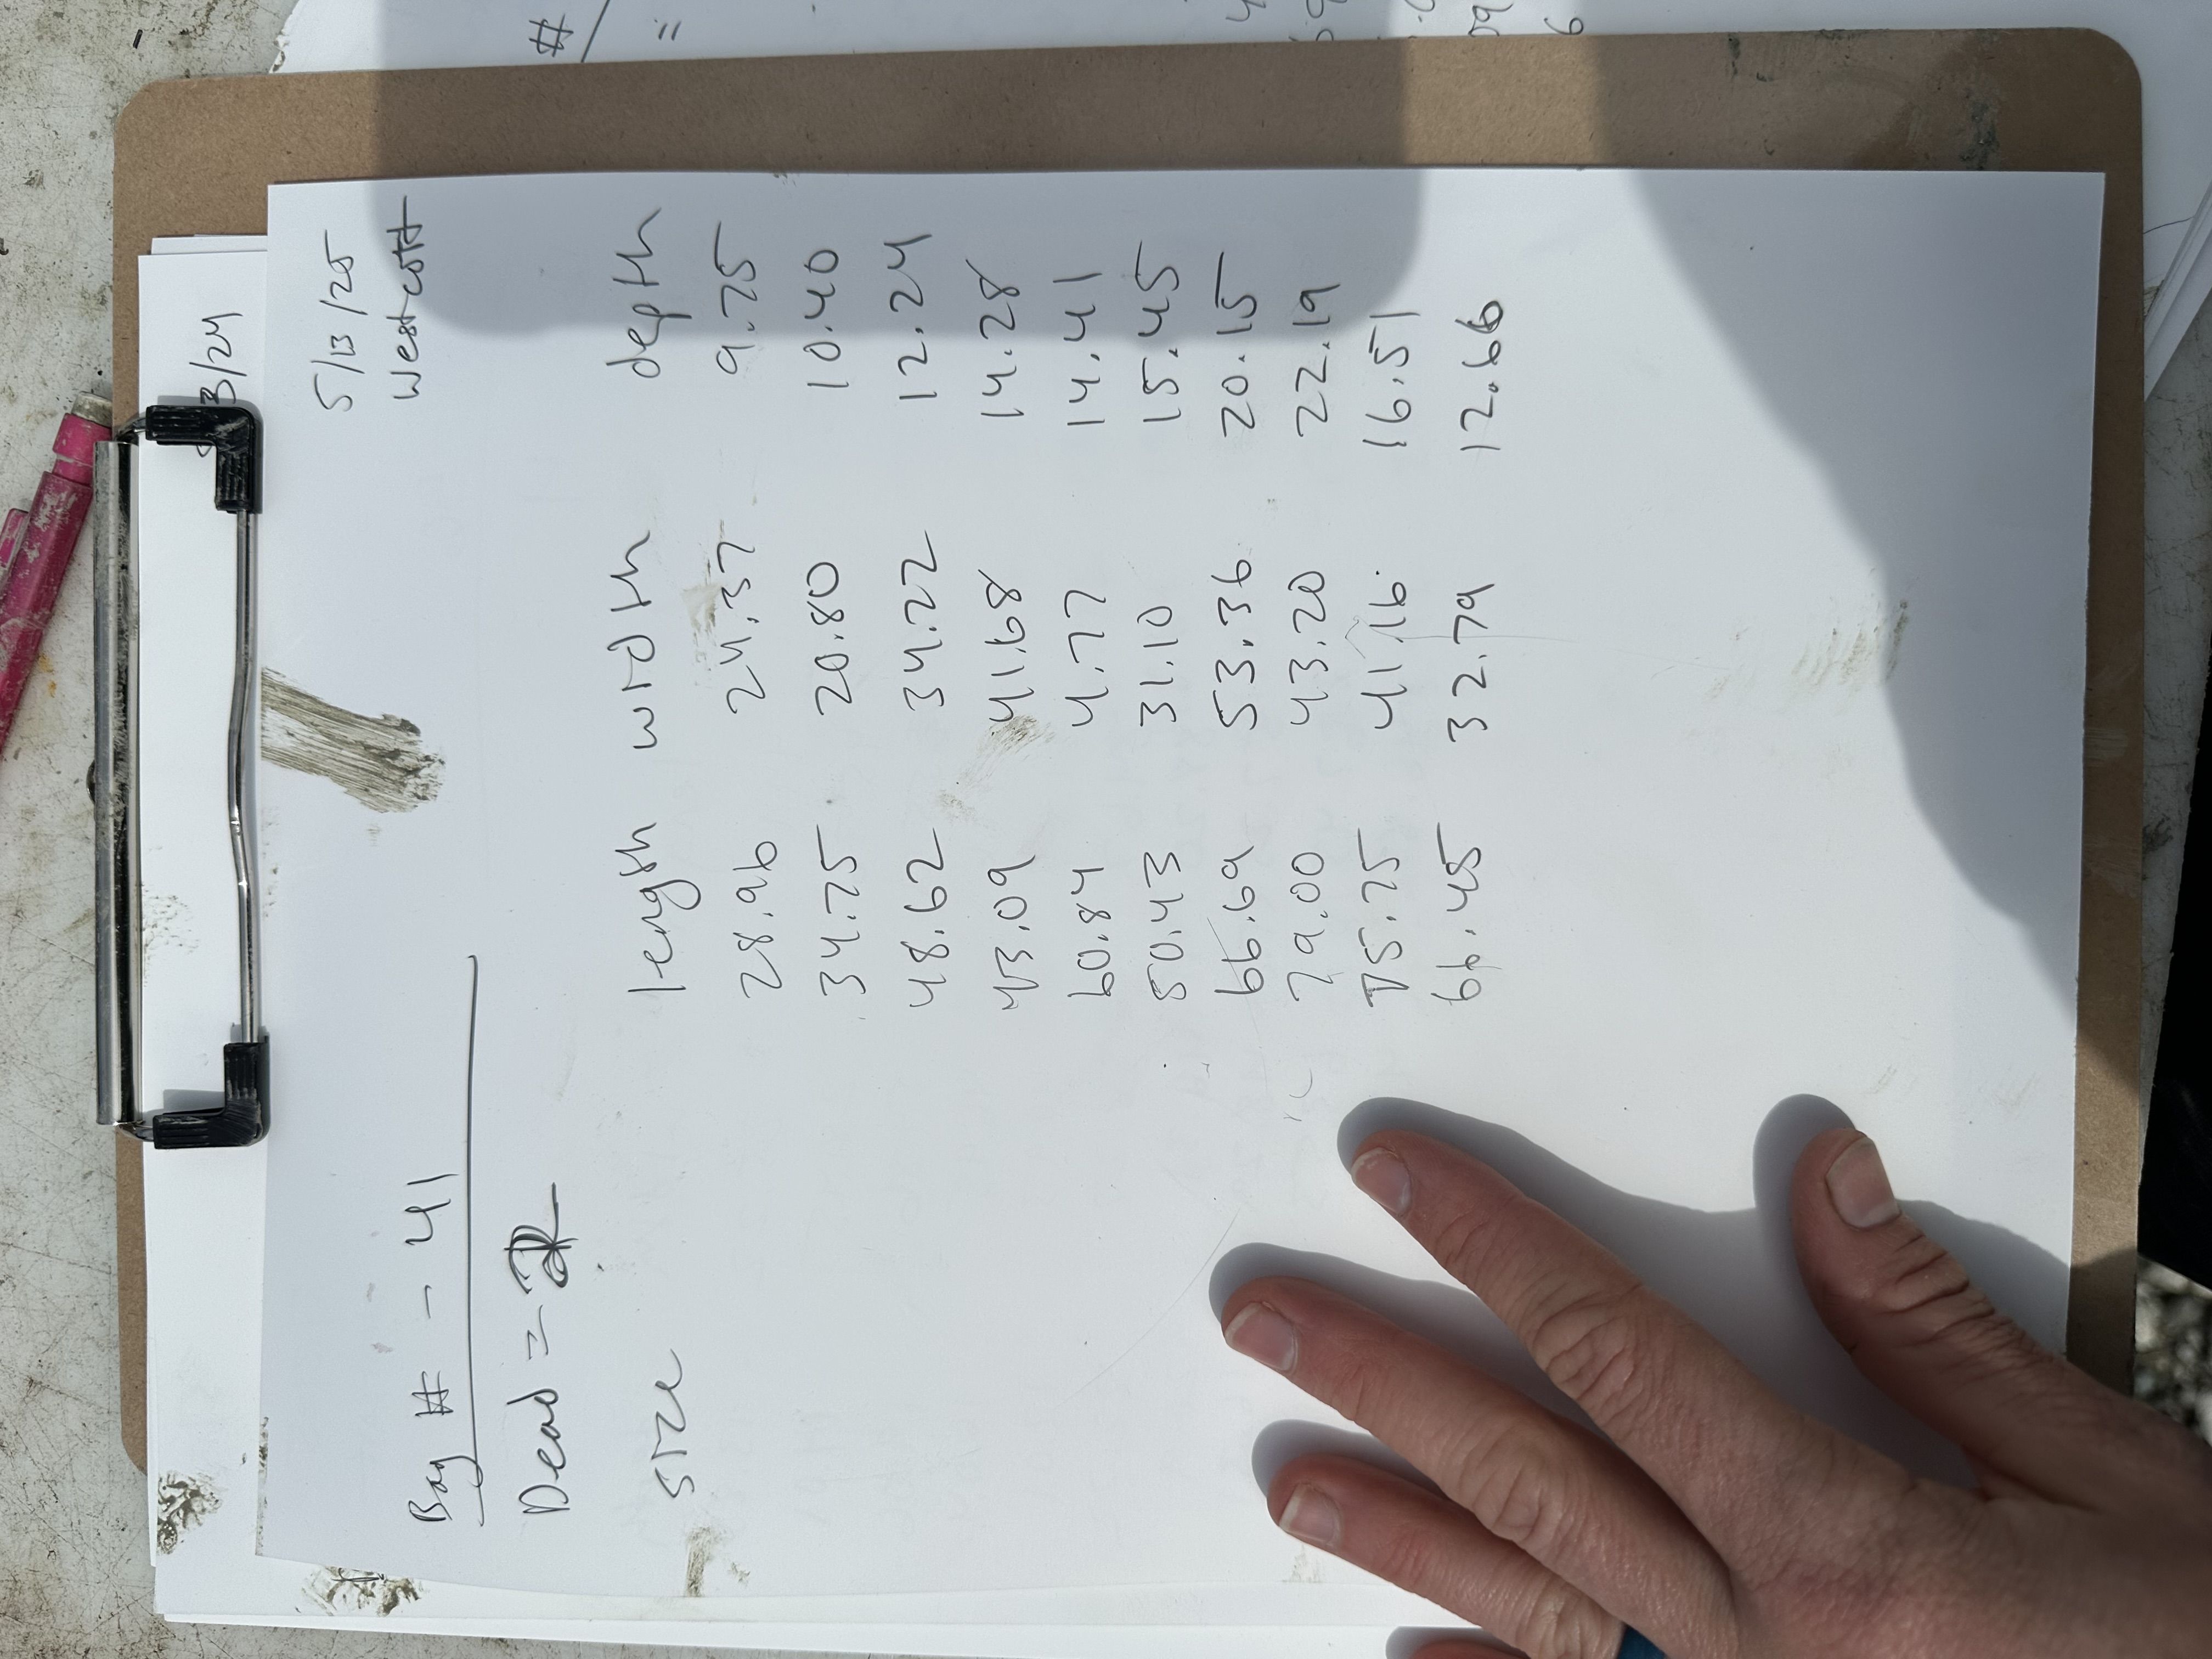 3/24
5/13/25
Westcott
Bag # - 41
Dead = 2
size length width depth
28.96 24.37 9.75
34.75 20.80 10.40
48.62 34.22 12.24
43.09 41.68 14.28
60.84 4.77 14.41
50.43 31.10 15.45
66.69 53.36 20.15
79.00 43.20 22.19
75.75 41.16 16.51
66.45 32.79 12.66
#
=